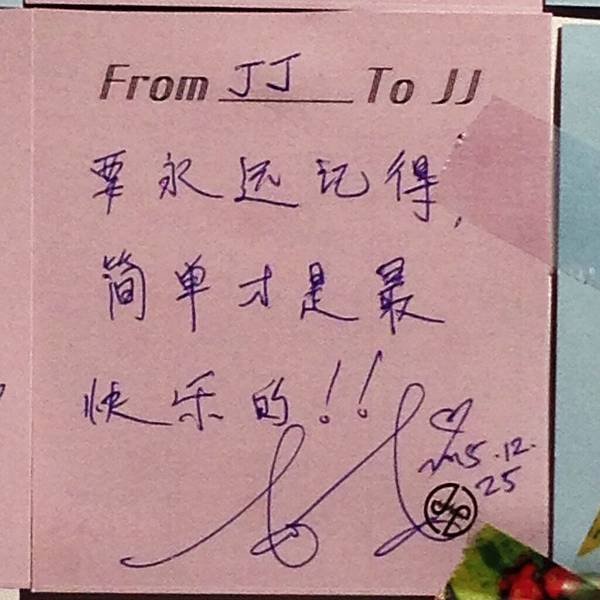 From JJ To JJ
要永远记得,
简单才是最
快乐的!!
2015.12.
25